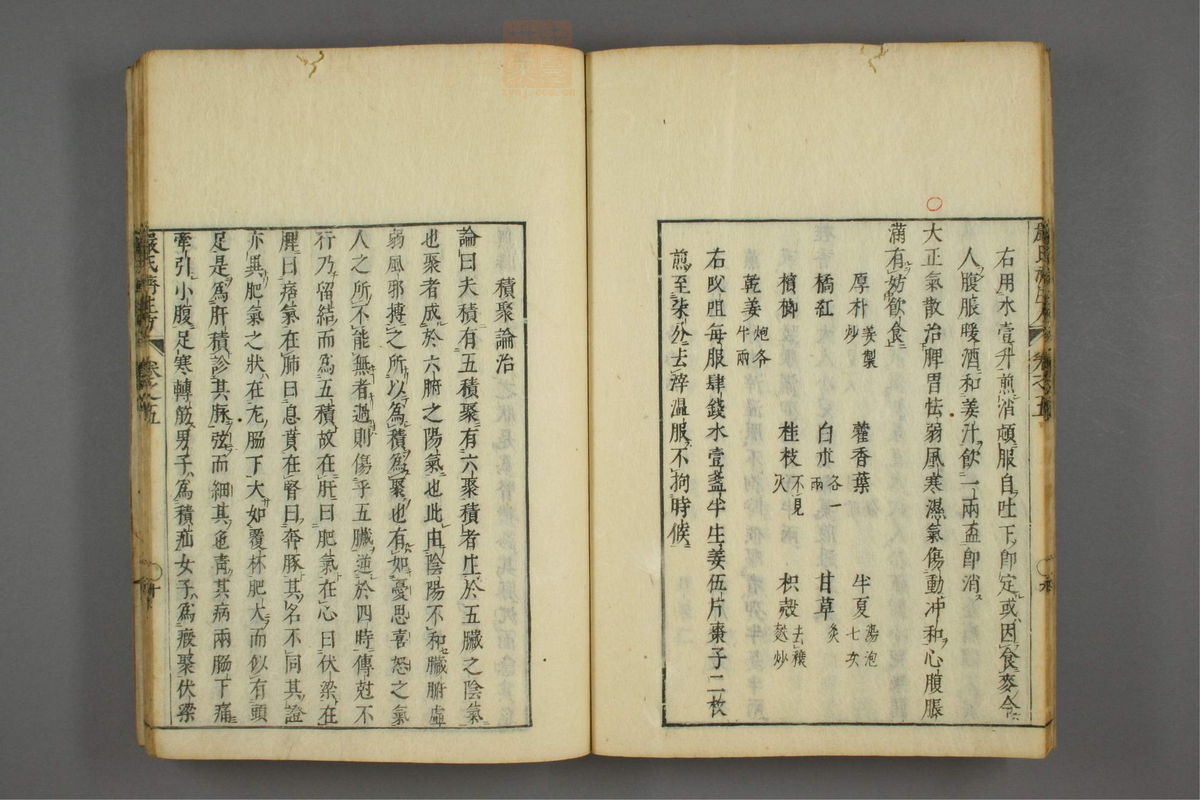 右用水壹升煎消頓服自吐下卽定或因食麥令
人腹脹暖酒和姜汁飲一兩盃卽消
大正氣散治脾胃怯弱風寒濕氣傷動冲和心腹脹
滿有妨飲食
厚朴姜製炒 藿香葉 半夏湯泡七次
橘紅 白朮各一兩 甘草炙
檳榔 桂枝不見火 枳殼去穰麩炒
乾姜炮各半兩
右㕮咀每服肆錢水壹盞半生姜伍片棗子二枚
煎至柒分去滓温服不拘時候
嚴氏濟生方 卷之五
積聚論治
論曰夫積有五積聚有六聚積者生於五臟之陰氣
也聚者成於六腑之陽氣也此由陰陽不和臟腑虛
弱風邪搏之所以為積為聚也有如憂思喜怒之氣
人之所不能無者過則傷乎五臟逆於四時傳尅不
行乃留結而為五積故在肝曰肥氣在心曰伏梁在
脾曰痞氣在肺曰息賁在腎曰奔豚其名不同其證
亦異肥氣之狀在左脇下大如覆杯肥大而似有頭
足是為肝積診其脉弦而細其色靑其病兩脇下痛
牽引小腹足寒轉筋男子為積疝女子為瘕聚伏梁
嚴氏濟生方 卷之五 十